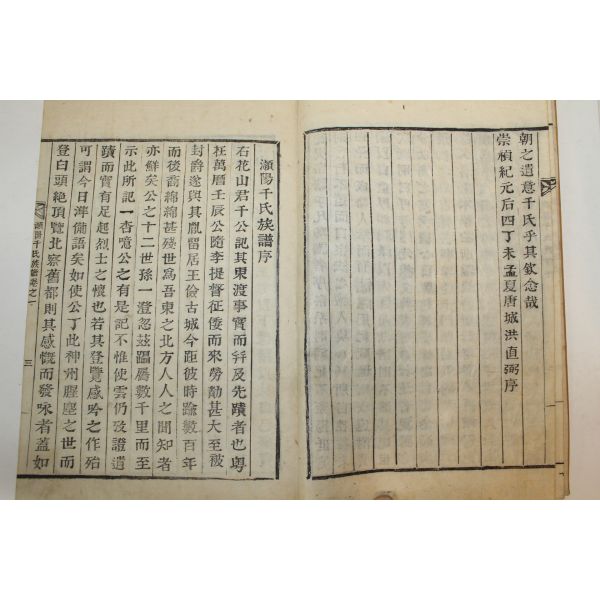 朝之遺意千氏乎其欽念哉
崇禎紀元后四丁未孟夏唐城洪直弼序
潁陽千氏族譜序
右花山君千公記其東渡事實而幷及先蹟者也粤
在萬曆壬辰公隨李提督征倭而來勞勩甚大至被
封爵遂與其胤留居王儉古城今距彼時踰數百年
而後裔綿綿甚殘世爲吾東之北方人人之聞知者
亦鮮矣公之十二世孫一澄忽玆躡屩數千里而至
示此所記一杳噫公之有是記不惟使雲仍攷證遺
蹟而實有足起烈士之懷也若其登覽感吟之作殆
可謂今日準備語矣如使公丁此神州腥塵之世而
登白頭絶頂覽北寨舊都則其感慨而發咏者蓋如
潁陽千氏族譜卷之一
三